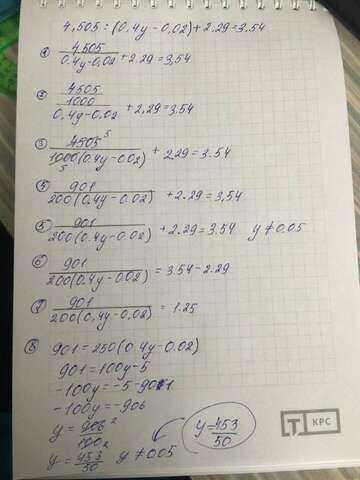 4,505 : (0,4y - 0,02) + 2.29 = 3.54
① 4,505 / 0.4y - 0,02 + 2.29 = 3,54
② 4505 / 1000 / 0,4y - 0,02 + 2,29 = 3.54
③ 4505 5 / 1000 5 (0.4y - 0,02) + 2.29 = 3.54
④ 901 / 200 (0.4y - 0.02) + 2.29 = 3,54
⑤ 901 / 200 (0.4y - 0.02) + 2.29 = 3.54 y ≠ 0.05
⑥ 901 / 200 (0.4y - 0.02) = 3.54 - 2.29
⑦ 901 / 200 (0,4y - 0,02) = 1.25
⑧ 901 = 250 (0.4y - 0.02)
901 = 100y - 5
-100y = -5 - 901
-100y = -906
y = 906 2 / 100 2
y = 453 / 50 y ≠ 0.05
y = 453 / 50
T КРС